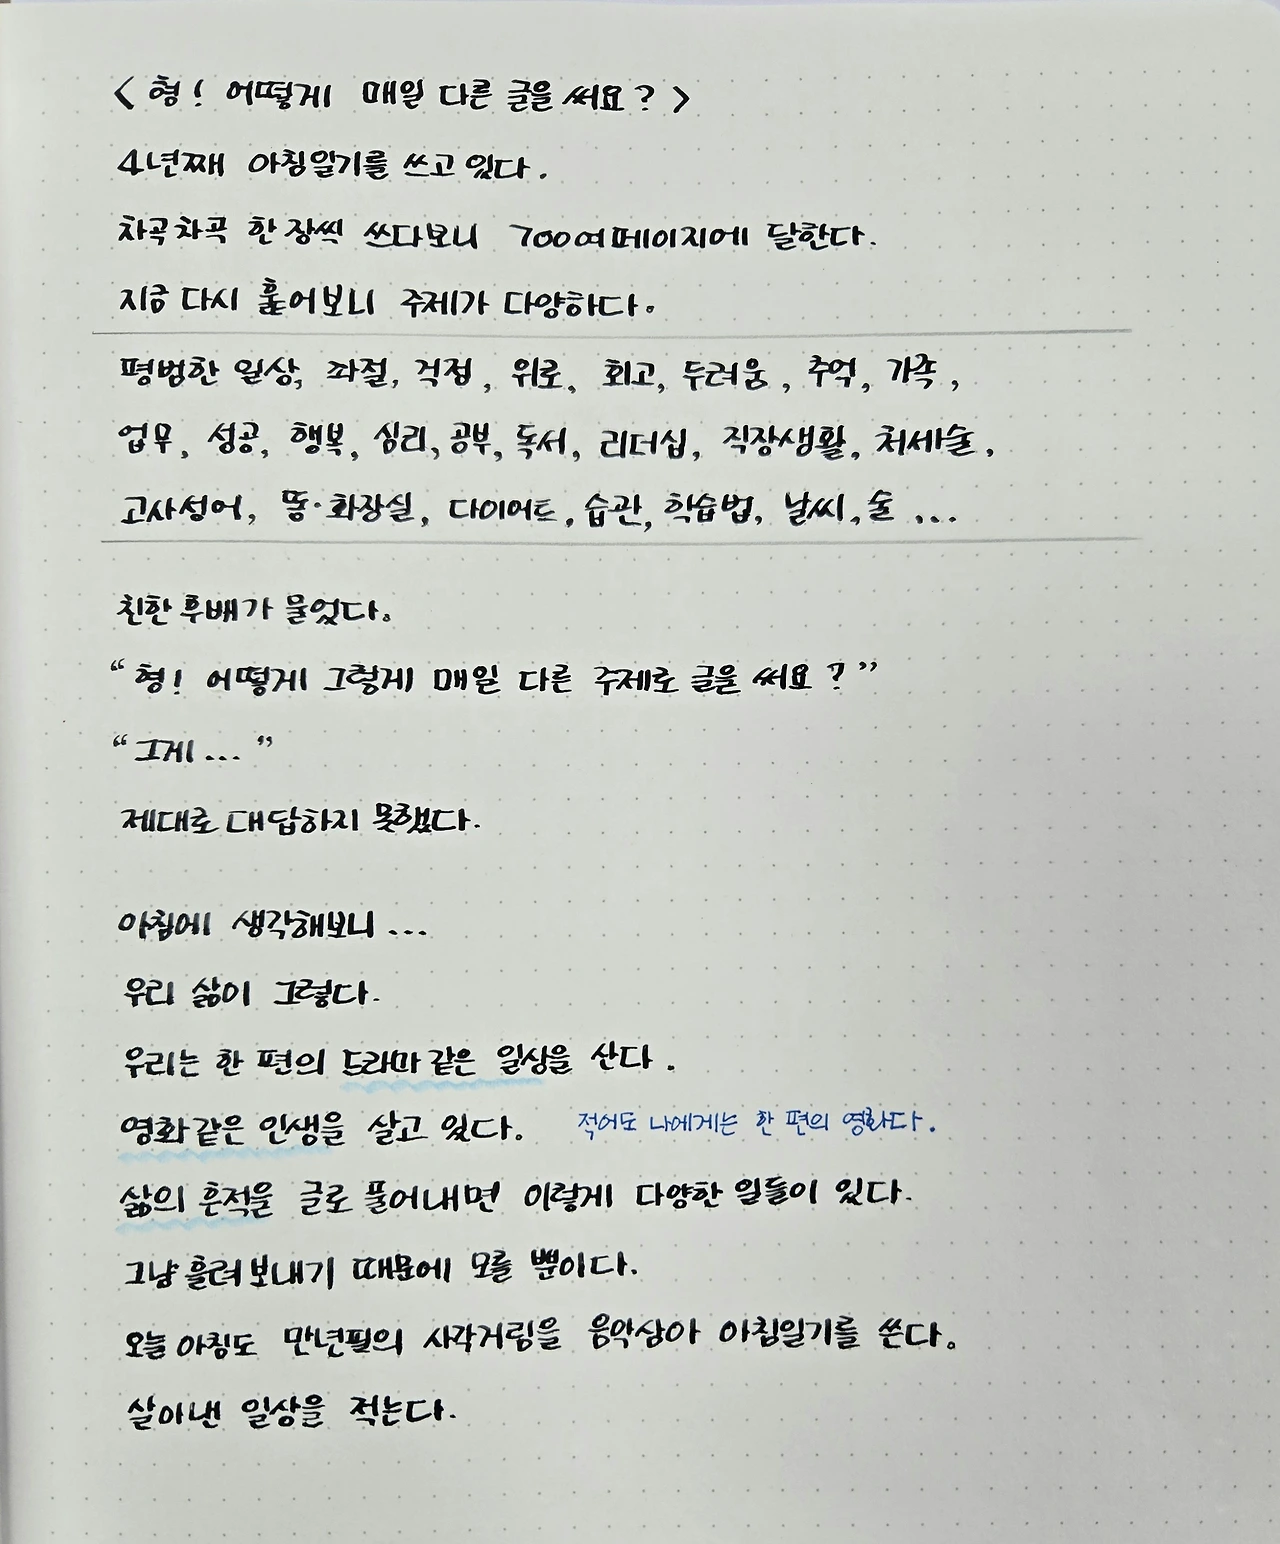 < 형! 어떻게 매일 다른 글을 써요? >
4년째 아침일기를 쓰고 있다.
차곡차곡 한 장씩 쓰다보니 700여페이지에 달한다.
지금 다시 훑어보니 주제가 다양하다.
평범한 일상, 좌절, 걱정, 위로, 회고, 두려움, 추억, 가족,
업무, 성공, 행복, 심리, 공부, 독서, 리더십, 직장생활, 처세술,
고사성어, 똥·화장실, 다이어트, 습관, 학습법, 날씨, 술 ...
친한 후배가 물었다.
“형! 어떻게 그렇게 매일 다른 주제로 글을 써요?”
“그게...”
제대로 대답하지 못했다.
아침에 생각해보니...
우리 삶이 그렇다.
우리는 한 편의 드라마 같은 일상을 산다.
영화같은 인생을 살고 있다. 적어도 나에게는 한 편의 영화다.
삶의 흔적을 글로 풀어내면 이렇게 다양한 일들이 있다.
그냥 흘려보내기 때문에 모를 뿐이다.
오늘 아침도 만년필의 사각거림을 음악삼아 아침일기를 쓴다.
살아낸 일상을 적는다.